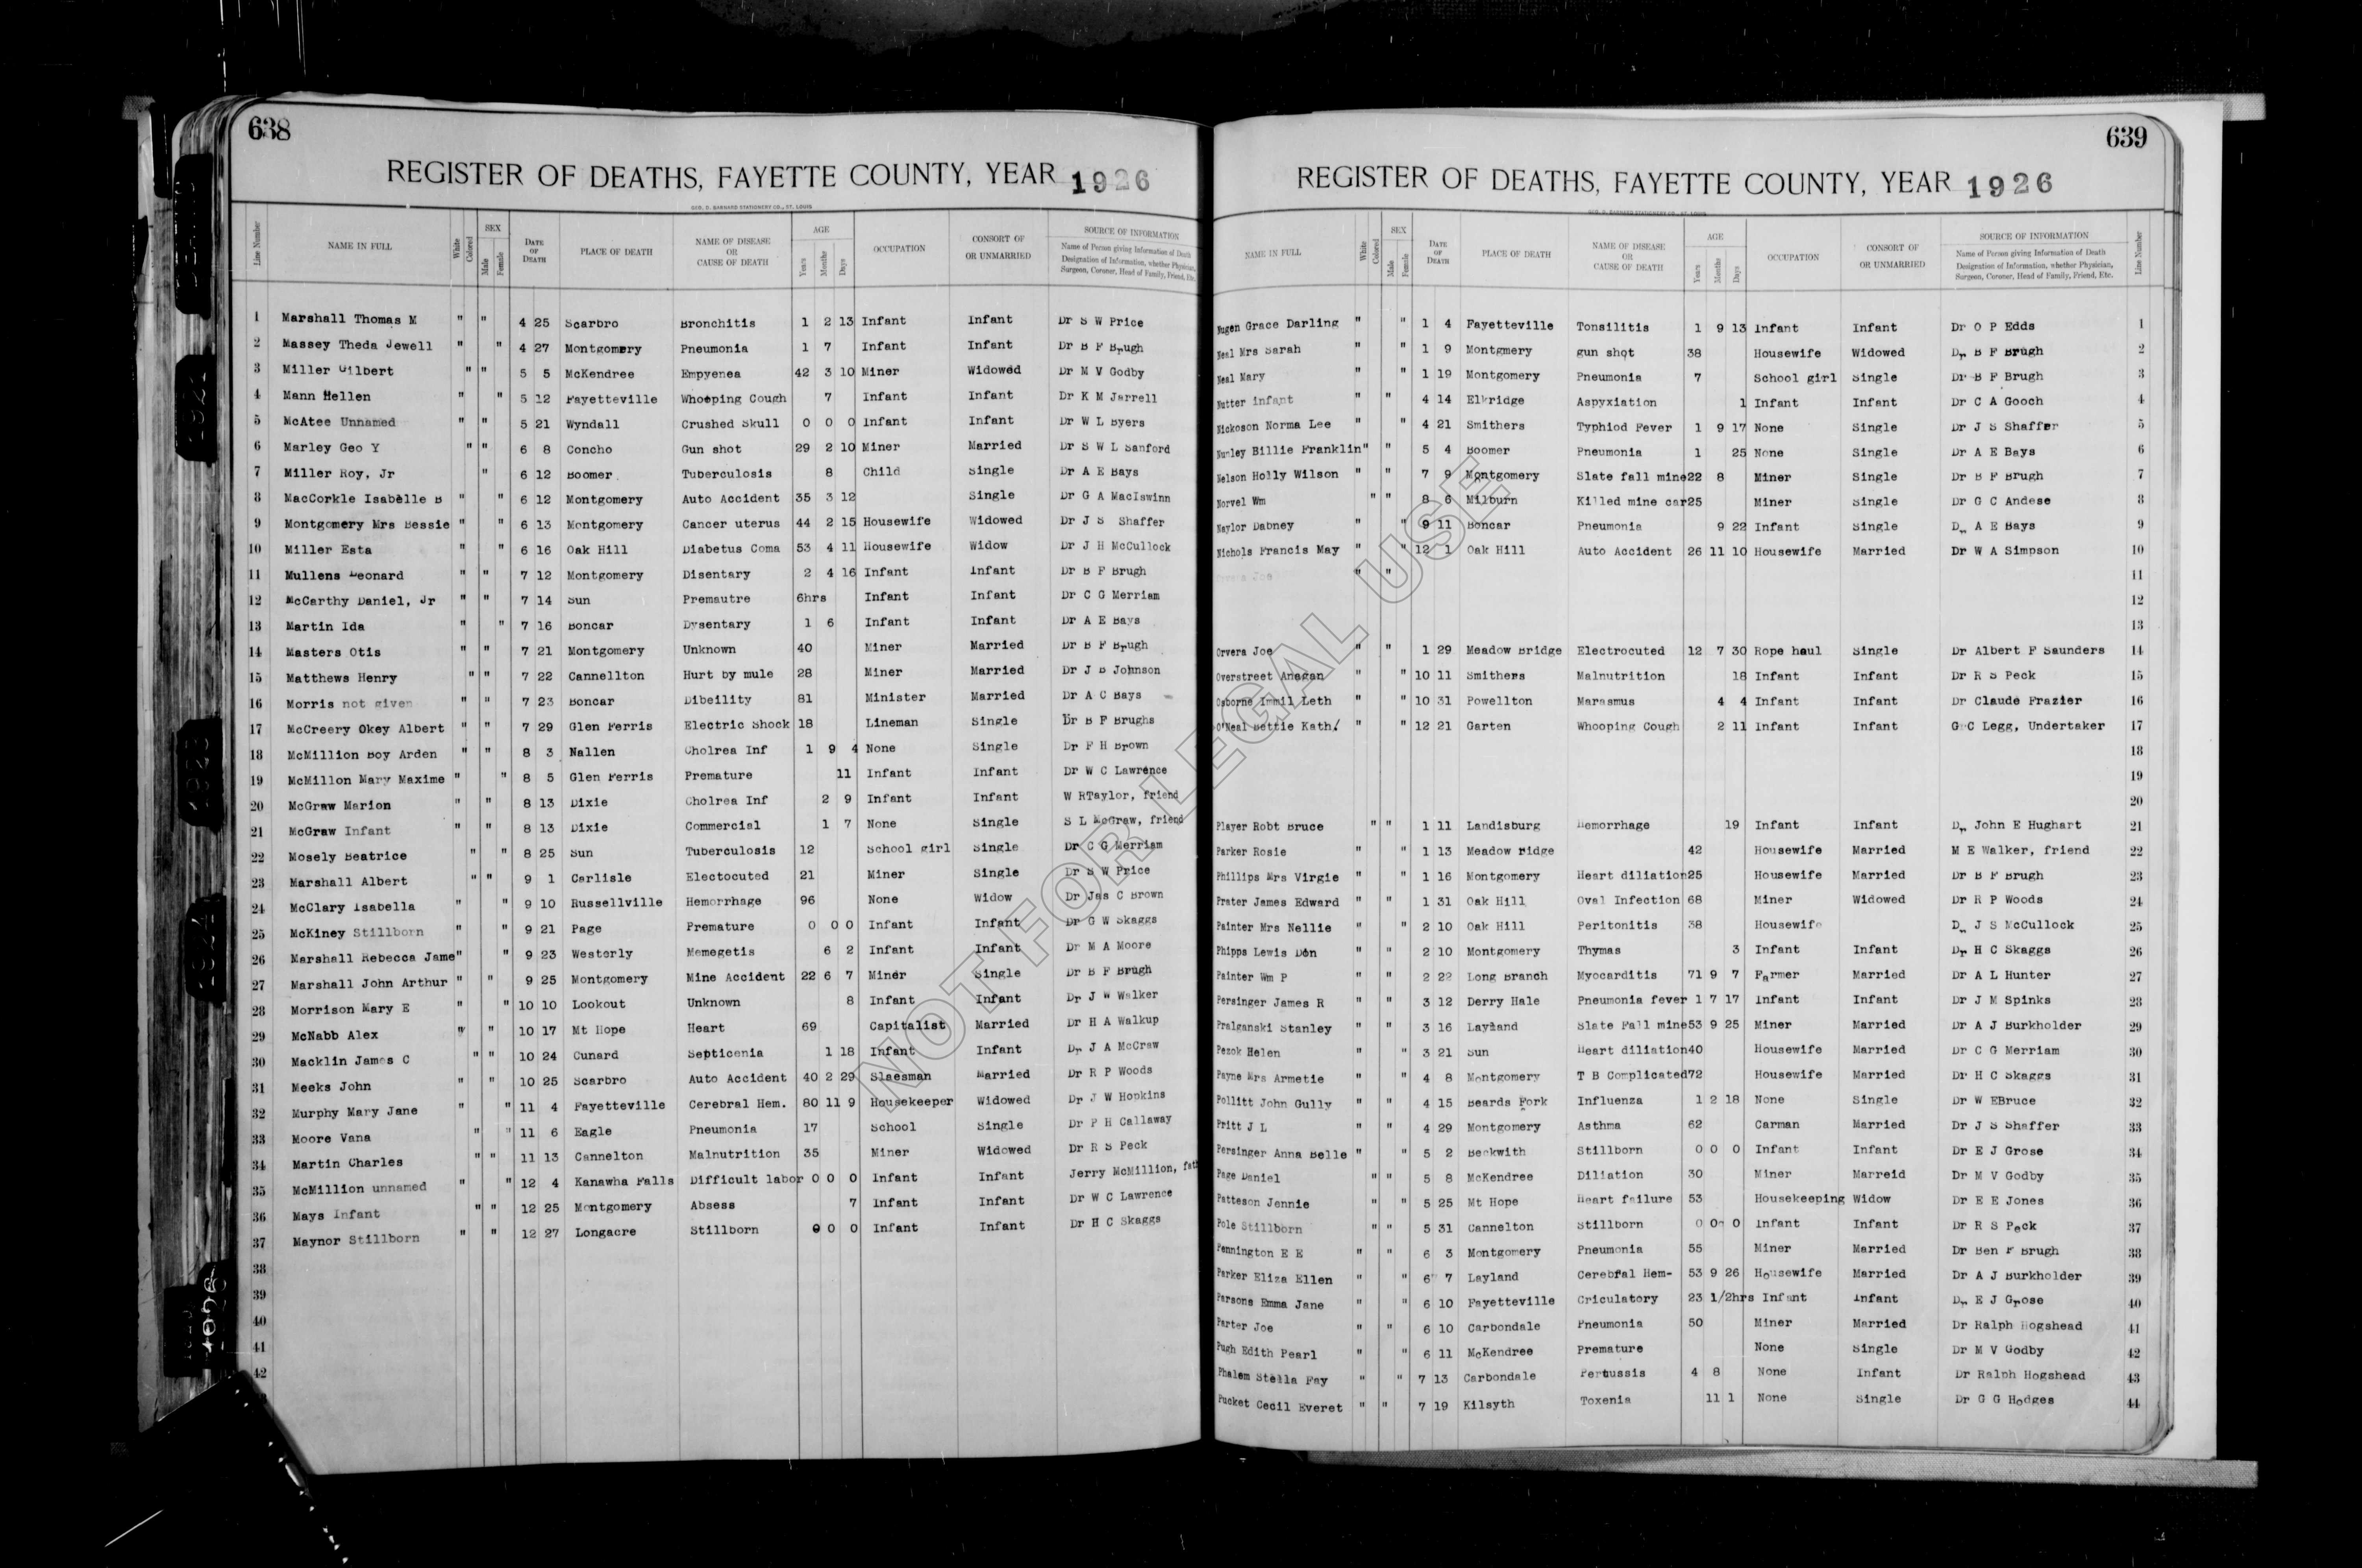 638
REGISTER OF DEATHS, FAYETTE COUNTY, YEAR 1926
GEO. D. BARNARD STATIONERY CO., ST. LOUIS
Line Number NAME IN FULL White Colored SEX Male Female DATE OF DEATH PLACE OF DEATH NAME OF DISEASE OR CAUSE OF DEATH AGE Years Months Days OCCUPATION CONSORT OF OR UNMARRIED SOURCE OF INFORMATION Name of Person giving Information of Death Designation of Information, whether Physician, Surgeon, Coroner, Head of Family, Friend, Etc.
1 Marshall Thomas M " " 4 25 Scarbro Bronchitis 1 2 13 Infant Infant Dr S W Price
2 Massey Theda Jewell " " 4 27 Montgomery Pneumonia 1 7 Infant Infant Dr B F Brugh
3 Miller Gilbert " " 5 5 McKendree Empyenea 42 3 10 Miner Widowed Dr M V Godby
4 Mann Hellen " " 5 12 Fayetteville Whooping Cough 7 Infant Infant Dr K M Jarrell
5 McAtee Unnamed " " 5 21 Wyndall Crushed Skull 0 0 0 Infant Infant Dr W L Byers
6 Marley Geo Y " " 6 8 Concho Gun shot 29 2 10 Miner Married Dr S W L Sanford
7 Miller Roy, Jr " 6 12 Boomer Tuberculosis 8 Child Single Dr A E Bays
8 MacCorkle Isabelle B " " 6 12 Montgomery Auto Accident 35 3 12 Single Dr G A MacIswinn
9 Montgomery Mrs Bessie " " 6 13 Montgomery Cancer uterus 44 2 15 Housewife Widowed Dr J S Shaffer
10 Miller Esta " " 6 16 Oak Hill Diabetus Coma 53 4 11 Housewife Widow Dr J H McCullock
11 Mullens Leonard " " 7 12 Montgomery Disentary 2 4 16 Infant Infant Dr B F Brugh
12 McCarthy Daniel, Jr " " 7 14 Sun Premautre 6hrs Infant Infant Dr C G Merriam
13 Martin Ida " " 7 16 Boncar Dysentary 1 6 Infant Infant Dr A E Bays
14 Masters Otis " " 7 21 Montgomery Unknown 40 Miner Married Dr B F Brugh
15 Matthews Henry " " 7 22 Cannellton Hurt by mule 28 Miner Married Dr J B Johnson
16 Morris not given " " 7 23 Boncar Dibeility 81 Minister Married Dr A C Bays
17 McCreery Okey Albert " " 7 29 Glen Ferris Electric Shock 18 Lineman Single Dr B F Brughs
18 McMillion Boy Arden " " 8 3 Nallen Cholrea Inf 1 9 4 None Single Dr F H Brown
19 McMillon Mary Maxime " " 8 5 Glen Ferris Premature 11 Infant Infant Dr W C Lawrence
20 McGraw Marion " " 8 13 Dixie Cholrea Inf 2 9 Infant Infant W RTaylor, friend
21 McGraw Infant " " 8 13 Dixie Commercial 1 7 None Single S L McGraw, friend
22 Mosely Beatrice " " 8 25 Sun Tuberculosis 12 School girl Single Dr C G Merriam
23 Marshall Albert " " 9 1 Carlisle Electocuted 21 Miner Single Dr S W Price
24 McClary Isabella " " 9 10 Russellville Hemorrhage 96 None Widow Dr Jas C Brown
25 McKiney Stillborn " " 9 21 Page Premature 0 0 0 Infant Infant Dr G W Skaggs
26 Marshall Rebecca Jame " " 9 23 Westerly Memegetis 6 2 Infant Infant Dr M A Moore
27 Marshall John Arthur " " 9 25 Montgomery Mine Accident 22 6 7 Miner Single Dr B F Brugh
28 Morrison Mary E " " 10 10 Lookout Unknown 8 Infant Infant Dr J W Walker
29 McNabb Alex " " 10 17 Mt Hope Heart 69 Capitalist Married Dr H A Walkup
30 Macklin James C " " 10 24 Cunard Septicenia 1 18 Infant Infant Dr J A McCraw
31 Meeks John " " 10 25 Scarbro Auto Accident 40 2 29 Slaesman Married Dr R P Woods
32 Murphy Mary Jane " " 11 4 Fayetteville Cerebral Hem. 80 11 9 Housekeeper Widowed Dr J W Hopkins
33 Moore Vana " " 11 6 Eagle Pneumonia 17 School Single Dr P H Callaway
34 Martin Charles " " 11 13 Cannelton Malnutrition 35 Miner Widowed Dr R S Peck
35 McMillion unnamed " " 12 4 Kanawha Falls Difficult labor 0 0 0 Infant Infant Jerry McMillion,
36 Mays Infant " " 12 25 Montgomery Absess 7 Infant Infant Dr W C Lawrence
37 Maynor Stillborn " " 12 27 Longacre Stillborn 0 0 0 Infant Infant Dr H C Skaggs
38
39
40
41
42
639
REGISTER OF DEATHS, FAYETTE COUNTY, YEAR 1926
NAME IN FULL White Colored SEX Male Female DATE OF DEATH PLACE OF DEATH NAME OF DISEASE OR CAUSE OF DEATH AGE Years Months Days OCCUPATION CONSORT OF OR UNMARRIED SOURCE OF INFORMATION Name of Person giving Information of Death Designation of Information, whether Physician, Surgeon, Coroner, Head of Family, Friend, Etc. Line Number
Nugen Grace Darling " " 1 4 Fayetteville Tonsilitis 1 9 13 Infant Infant Dr O P Edds 1
Neal Mrs Sarah " " 1 9 Montgmery gun shot 38 Housewife Widowed Dr B F Brugh 2
Neal Mary " " 1 19 Montgomery Pneumonia 7 School girl Single Dr B F Brugh 3
Nutter infant " " 4 14 Elkridge Aspyxiation 1 Infant Infant Dr C A Gooch 4
Nickoson Norma Lee " " 4 21 Smithers Typhiod Fever 1 9 17 None Single Dr J S Shaffer 5
Nunley Billie Franklin " " 5 4 Boomer Pneumonia 1 25 None Single Dr A E Bays 6
Nelson Holly Wilson " " 7 9 Montgomery Slate fall mine 22 8 Miner Single Dr B F Brugh 7
Norvel Wm " " 8 6 Milburn Killed mine car 25 Miner Single Dr G C Andese 8
Naylor Dabney " " 9 11 Boncar Pneumonia 9 22 Infant Single Dr A E Bays 9
Nichols Francis May " " 12 1 Oak Hill Auto Accident 26 11 10 Housewife Married Dr W A Simpson 10
Joe " " 11
12
13
Orvera Joe " " 1 29 Meadow Bridge Electrocuted 12 7 30 Rope haul Single Dr Albert F Saunders 14
Overstreet Anagan " " 10 11 Smithers Malnutrition 18 Infant Infant Dr R S Peck 15
Osborne Immil Leth " " 10 31 Powellton Marasmus 4 4 Infant Infant Dr Claude Frazier 16
O'Neal Bettie Kath. " " 12 21 Garten Whooping Cough 2 11 Infant Infant G C Legg, Undertaker 17
18
19
20
Player Robt Bruce " " 1 11 Landisburg Hemorrhage 19 Infant Infant Dr John E Hughart 21
Parker Rosie " " 1 13 Meadow ridge 42 Housewife Married M E Walker, friend 22
Phillips Mrs Virgie " " 1 16 Montgomery Heart diliation 25 Housewife Married Dr B F Brugh 23
Prater James Edward " " 1 31 Oak Hill Oval Infection 68 Miner Widowed Dr R P Woods 24
Painter Mrs Nellie " " 2 10 Oak Hill Peritonitis 38 Housewife Dr J S McCullock 25
Phipps Lewis Don " " 2 10 Montgomery Thymas 3 Infant Infant Dr H C Skaggs 26
Painter Wm P " " 2 22 Long Branch Myocarditis 71 9 7 Farmer Married Dr A L Hunter 27
Persinger James R " " 3 12 Derry Hale Pneumonia fever 1 7 17 Infant Infant Dr J M Spinks 28
Pralganski Stanley " " 3 16 Layland Slate Fall mine 53 9 25 Miner Married Dr A J Burkholder 29
Pezok Helen " " 3 21 Sun Heart diliation 40 Housewife Married Dr C G Merriam 30
Payne Mrs Armetie " " 4 8 Montgomery T B Complicated 72 Housewife Married Dr H C Skaggs 31
Pollitt John Gully " " 4 15 Beards Fork Influenza 1 2 18 None Single Dr W EBruce 32
Pritt J L " " 4 29 Montgomery Asthma 62 Carman Married Dr J S Shaffer 33
Persinger Anna Belle " " 5 2 Beckwith Stillborn 0 0 0 Infant Infant Dr E J Grose 34
Page Daniel " " 5 8 McKendree Diliation 30 Miner Marreid Dr M V Godby 35
Patteson Jennie " " 5 25 Mt Hope Heart failure 53 Housekeeping Widow Dr E E Jones 36
Pole Stillborn " " 5 31 Cannelton Stillborn 0 0 0 Infant Infant Dr R S Peck 37
Pennington E E " " 6 3 Montgomery Pneumonia 55 Miner Married Dr Ben F Brugh 38
Parker Eliza Ellen " " 6 7 Layland Cerebral Hem- 53 9 26 Housewife Married Dr A J Burkholder 39
Parsons Emma Jane " " 6 10 Fayetteville Criculatory 23 1/2hrs Infant Infant Dr E J Grose 40
Parter Joe " " 6 10 Carbondale Pneumonia 50 Miner Married Dr Ralph Hogshead 41
Pugh Edith Pearl " " 6 11 McKendree Premature None Single Dr M V Godby 42
Phalem Stella Fay " " 7 13 Carbondale Pertussis 4 8 None Infant Dr Ralph Hogshead 43
Pucket Cecil Everet " " 7 19 Kilsyth Toxenia 11 1 None Single Dr G G Hodges 44
NOT FOR LEGAL USE